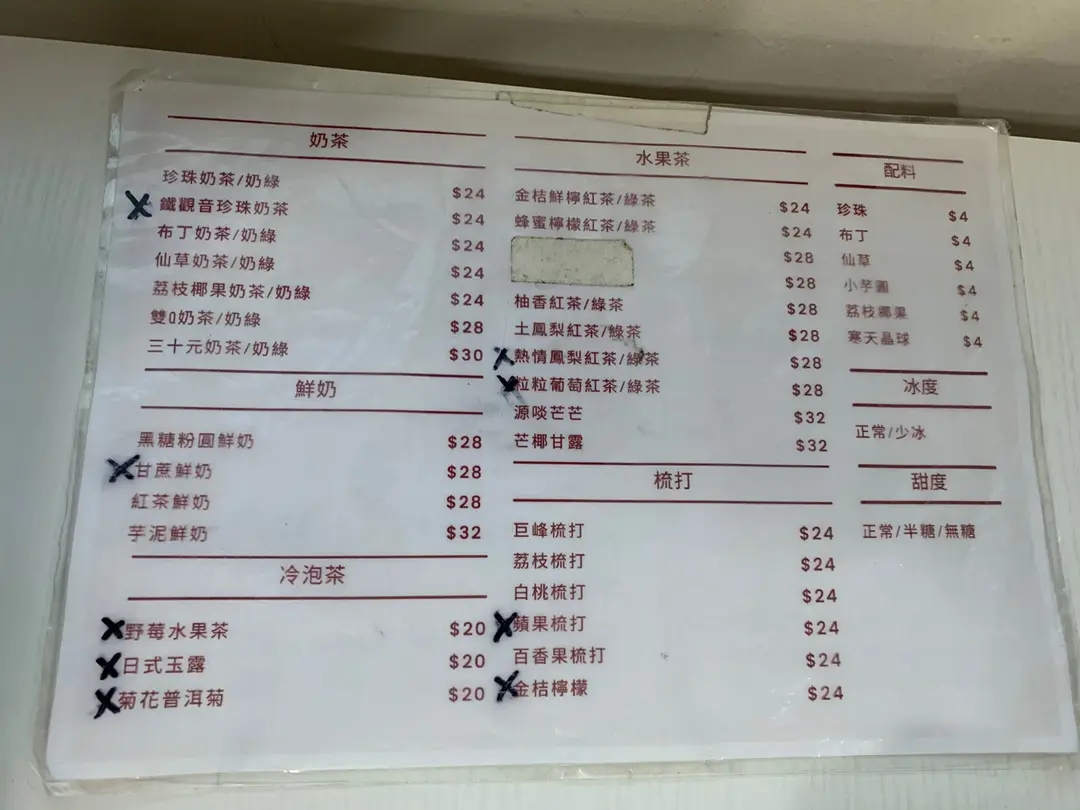 奶茶
珍珠奶茶/奶綠 $24
鐵觀音珍珠奶茶 $24
布丁奶茶/奶綠 $24
仙草奶茶/奶綠 $24
荔枝椰果奶茶/奶綠 $24
雙Q奶茶/奶綠 $28
三十元奶茶/奶綠 $30
鮮奶
黑糖粉圓鮮奶 $28
甘蔗鮮奶 $28
紅茶鮮奶 $28
芋泥鮮奶 $32
冷泡茶
野莓水果茶 $20
日式玉露 $20
菊花普洱菊 $20
水果茶
金桔鮮檸紅茶/綠茶 $24
蜂蜜檸檬紅茶/綠茶 $24
$28
$28
柚香紅茶/綠茶 $28
土鳳梨紅茶/綠茶 $28
熱情鳳梨紅茶/綠茶 $28
粒粒葡萄紅茶/綠茶 $28
源啖芒芒 $32
芒椰甘露 $32
梳打
巨峰梳打 $24
荔枝梳打 $24
白桃梳打 $24
蘋果梳打 $24
百香果梳打 $24
金桔檸檬 $24
配料
珍珠 $4
布丁 $4
仙草 $4
小芋圓 $4
荔枝椰果 $4
寒天晶球 $4
冰度
正常/少冰
甜度
正常/半糖/無糖